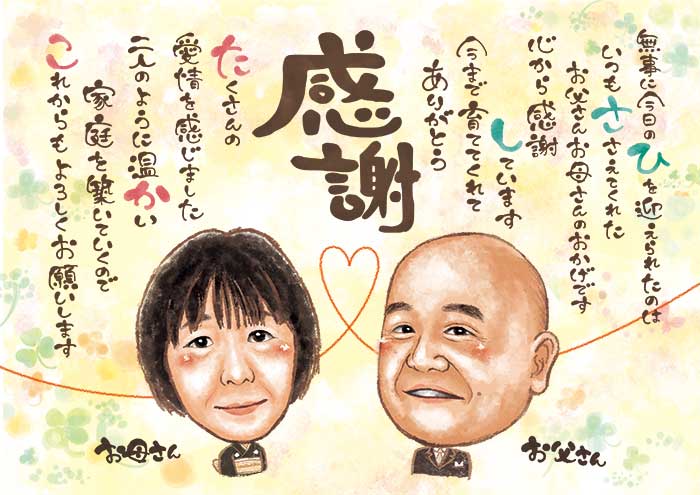 感謝
無事に今日のひを迎えられたのは
いつもささえてくれた
お父さんお母さんのおかげです
心から感謝
しています
今まで育ててくれて
ありがとう
たくさんの
愛情を感じました
二人のように温かい
家庭を築いていくので
これからもよろしくお願いします
お母さん
お父さん